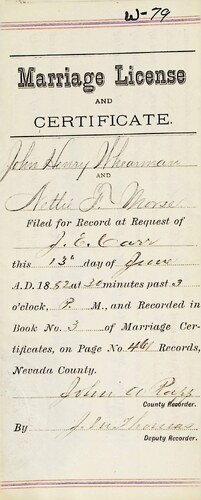 W-79
Marriage License
AND
CERTIFICATE.
John Henry Whearman
AND
Nettie F. Morse
Filed for Record at Request of
J. E. Carr
this 13th day of June
A.D. 1882 at 30 minutes past 3
o'clock, P. M., and Recorded in
Book No. 3 of Marriage Cer-
tificates, on Page No. 461 Records,
Nevada County.
John A Rapp
County Recorder.
By J. Thomas
Deputy Recorder.